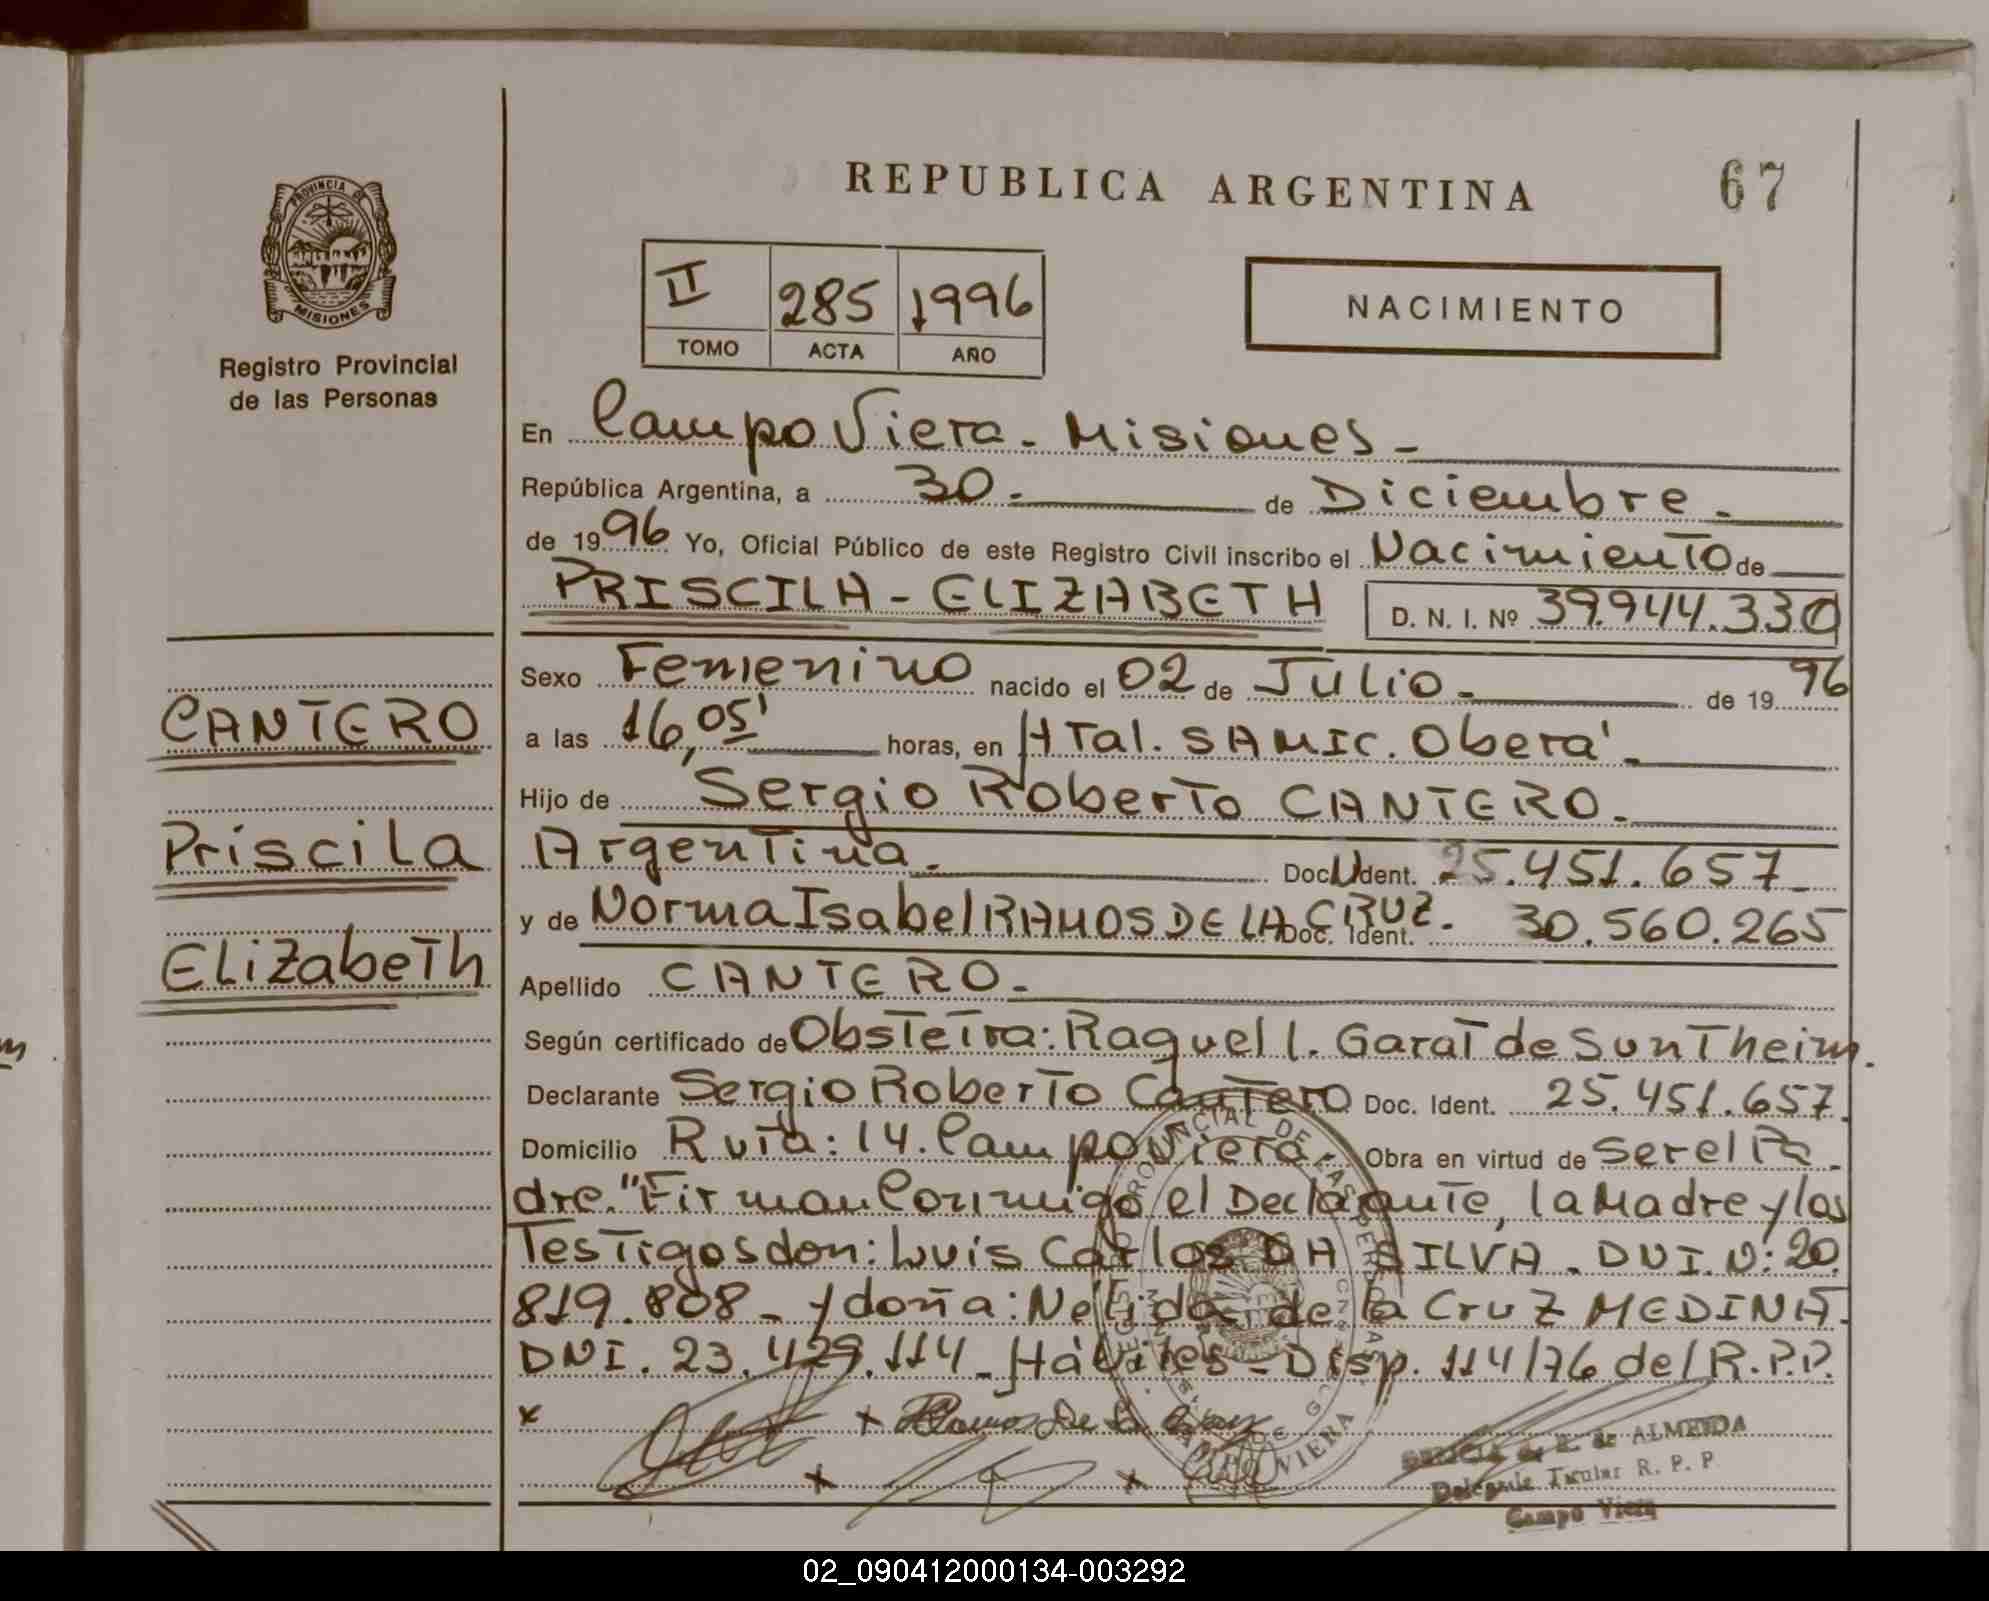 REPUBLICA ARGENTINA
67
PROVINCIA DE
MISIONES
Registro Provincial
de las Personas
II 285 1996
TOMO ACTA AÑO
NACIMIENTO
En Campo Viera - Misiones -
República Argentina, a 30 - de Diciembre -
de 1996 Yo, Oficial Público de este Registro Civil inscribo el Nacimiento de
PRISCILA - ELIZABETH D. N. I. Nº 39.944.330
Sexo Femenino nacido el 02 de Julio - de 1996
a las 16,05' horas, en HTal. SAMIC. Oberá -
Hijo de Sergio Roberto CANTERO -
Argentina - Doc. Ident. 25.451.657 -
y de Norma Isabel RAMOS DE LA CRUZ. Doc. Ident. 30.560.265
Apellido CANTERO -
Según certificado de Obstetra: Raquel l. Garat de Suntheim.
Declarante Sergio Roberto Cantero Doc. Ident. 25.451.657.
Domicilio Ruta: 14. Campo Viera. Obra en virtud de ser el Pa-
dre. "Firman Conmigo el Declarante, la Madre y los
Testigos don: Luis Carlos DA SILVA - DNI. N: 20.
819.808 - y doña: Nélida de la Cruz MEDINA.
DNI. 23.429.114 - Hábiles - Disp. 114/76 del R.P.P.
x x Ramos De la Cruz
x x
de ALMEIDA
Delegada Titular R. P. P
Campo Viera
CANTERO
Priscila
Elizabeth
02_090412000134-003292